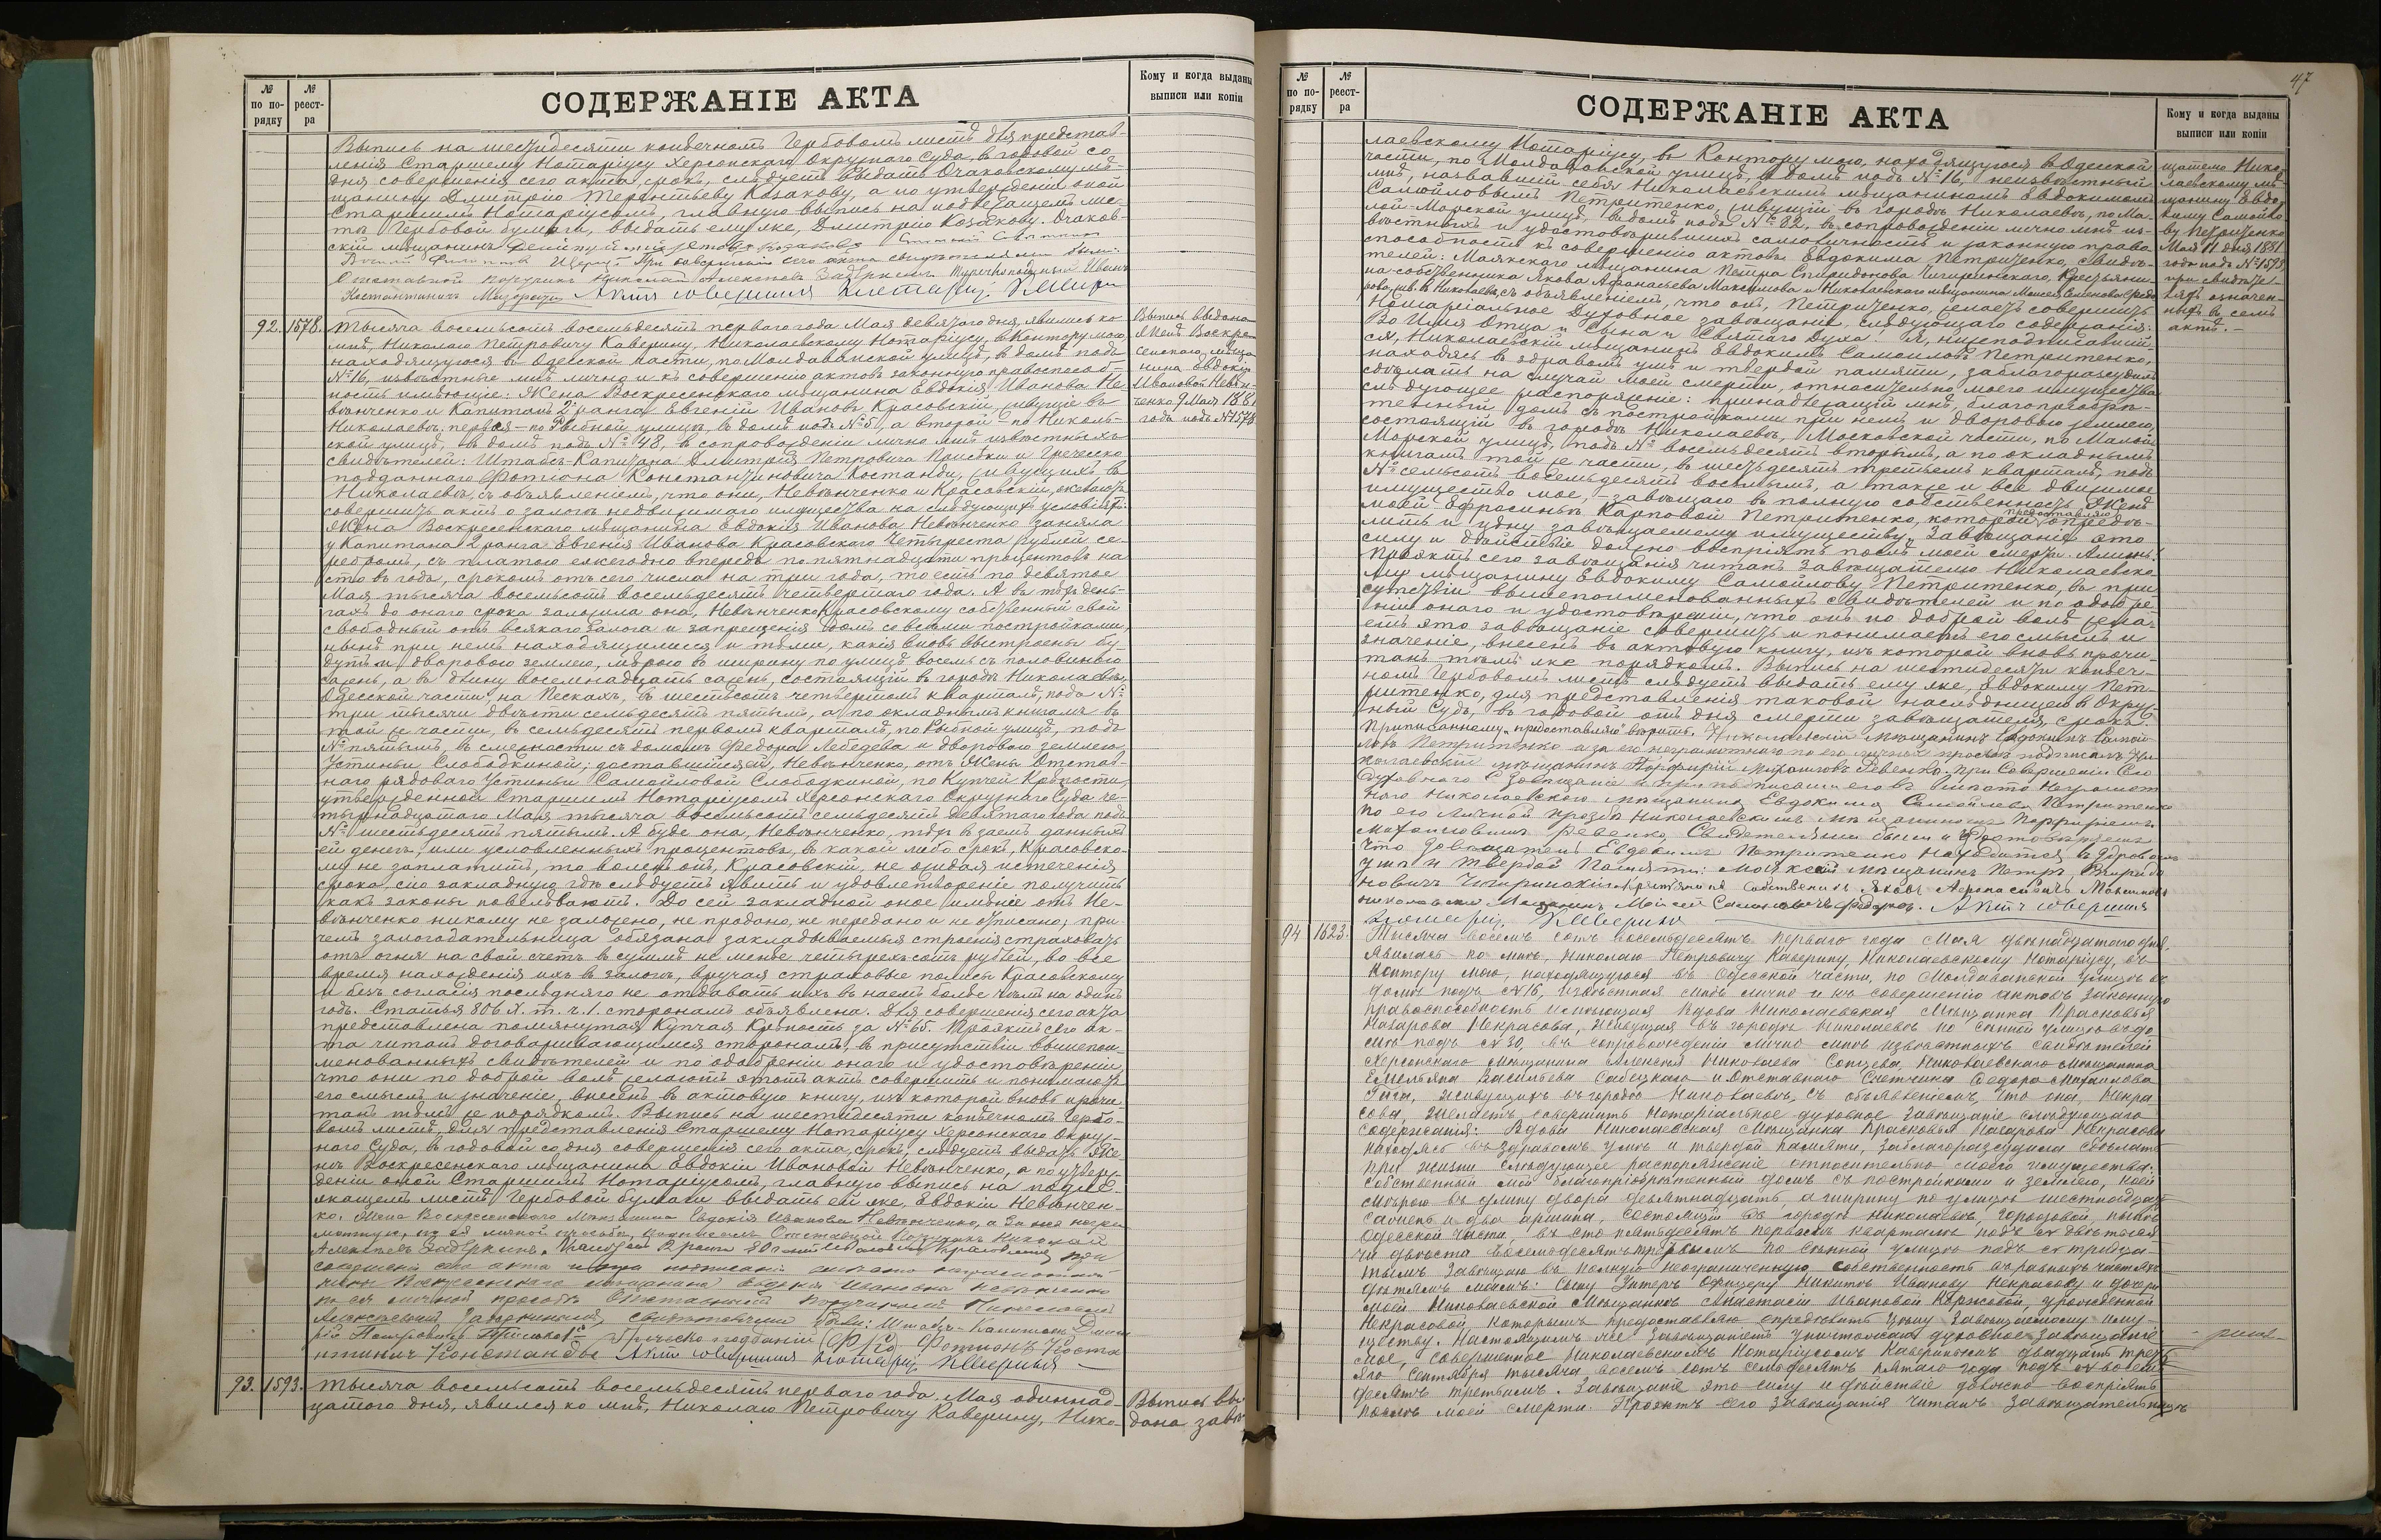 № по по-рядку
№ реест-ра
СОДЕРЖАНІЕ АКТА
Кому и когда выданы выписи или копіи
Выпись на шестидесяти копѣечномъ Гербовомъ листѣ для представ-
ленія Старшему Нотаріусу Херсонскаго Окружнаго Суда, въ годовой со
дня совершенія сего акта, срокъ, слѣдуетъ выдать Очаковскому мѣ-
щанину Дмитрію Терентьеву Козакову, а по утвержденіи оной
Старшимъ Нотаріусомъ, главную выпись на подлежащемъ лис-
тѣ Гербовой бумаги, выдать ему же, Дмитрію Козакову. Очаков-
скій мѣщанинъ
При совершеніи сего акта свидѣтелями были:
Отставной поручикъ Николай Алексѣевъ Задеркинъ Иванъ
Константинъ Актъ совершилъ Нотаріусъ Каверинъ
92. 1578. Тысяча восемьсотъ восемьдесятъ перваго года Мая девятаго дня, явились ко
мнѣ, Николаю Петровичу Каверину, Николаевскому Нотаріусу, въ Контору мою,
находящуюся въ Одесской части, по Молдаванской улицѣ, въ домѣ подъ
№ 16, извѣстные мнѣ лично и къ совершенію актовъ законную правоспособ-
ность имѣющіе: Жена Воскресенскаго мѣщанина Евдокія Иванова Не-
вѣнченко и Капитанъ 2 ранга Евгеній Ивановъ Красовскій, живущіе въ
Николаевѣ: первая – по Рыбной улицѣ, въ домѣ подъ № 5, а второй – по Николь-
ской улицѣ, въ домѣ подъ № 48, въ сопровожденіи лично мнѣ извѣстныхъ
свидѣтелей: Штабсъ-Капитана Дмитрія Петровича Прислки и Греческо
подданнаго Фотіона Константиновича Костанди, живущихъ въ
Николаевѣ, съ объявленіемъ, что они, Невѣнченко и Красовскій, желаютъ
совершить актъ о залогѣ недвижимаго имущества на слѣдующихъ условіяхъ:
Жена Воскресенскаго мѣщанина Евдокія Иванова Невѣнченко заняла
у Капитана 2 ранга Евгенія Иванова Красовскаго Четыреста рублей се-
ребромъ, съ платою ежегодно впередъ по пятнадцати процентовъ на
сто въ годъ, срокомъ отъ сего числа на три года, то есть по девятое
Мая тысяча восемьсотъ восемьдесятъ четвертаго года. А въ тѣхъ день-
гахъ до онаго срока заложила она, Невѣнченко, Красовскому собственный свой
свободный отъ всякаго залога и запрещенія домъ со всѣми постройками,
нынѣ при немъ находящимися и тѣми, какія вновь выстроены бу-
дутъ и дворовою землею, мѣрою въ ширину по улицѣ восемь съ половиною
сажень, а въ длину восемнадцать сажень, состоящій въ городѣ Николаевѣ,
Одесской части, на Пескахъ, въ шестьсотъ четвертомъ кварталѣ, подъ №
три тысячи двѣсти семьдесятъ пятымъ, а по окладнымъ книгамъ въ
той же части, въ семьдесятъ первомъ кварталѣ, по Рыбной улицѣ, подъ
№ пятымъ, въ смежности съ домомъ Федора Лебедева и дворовою землею
Устиньи Слободкиной; доставшійся ей, Невѣнченко, отъ Жены Отстав-
наго рядоваго Устиньи Самойловой Слободкиной, по Купчей Крѣпости,
утвержденной Старшимъ Нотаріусомъ Херсонскаго Окружнаго Суда че-
тырнадцатаго Мая тысяча восемьсотъ семьдесятъ девятаго года подъ
№ шестьдесятъ пятымъ. А буде она, Невѣнченко, тѣхъ въ заемъ данныхъ
ей денегъ, или условленныхъ процентовъ, въ какой либо срокъ, Красовско-
му не заплатитъ, то воленъ онъ, Красовскій, не ожидая истеченія
срока, сію закладную гдѣ слѣдуетъ явить и удовлетвореніе получить
какъ законы повелѣваютъ. До сей закладной оное имѣніе отъ Не-
вѣнченко никому не заложено, не продано, не передано и не отписано; при-
чемъ залогодательница обязана закладываемыя строенія страховать
отъ огня на свой счетъ въ суммѣ не менѣе четырехъ сотъ рублей, во все
время нахожденія ихъ въ залогѣ, вручая страховые полисы Красовскому
и безъ согласія послѣдняго не отдавать ихъ въ наемъ болѣе чѣмъ на одинъ
годъ. Статья 806 X. т. ч. 1. сторонамъ объявлена. Для совершенія сего акта
представлена помянутая Купчая Крѣпость за № 65. Проэктъ сего ак-
та читанъ договаривающимся сторонамъ, въ присутствіи вышепои-
менованныхъ свидѣтелей и по одобреніи онаго и удостовѣреніи,
что они по доброй волѣ желаютъ этотъ актъ совершить и понимаютъ
его смыслъ и значеніе, внесенъ въ актовую книгу, изъ которой вновь прочи-
танъ тѣмъ же порядкомъ. Выпись на шестидесяти копѣечномъ Гербо-
вомъ листѣ, для представленія Старшему Нотаріусу Херсонскаго Окруж-
наго Суда, въ годовой со дня совершенія сего акта, срокъ, слѣдуетъ выдать Же-
нѣ Воскресенскаго мѣщанина Евдокіи Ивановой Невѣнченко, а по утверж-
деніи оной Старшимъ Нотаріусомъ, главную выпись на подле-
жащемъ листѣ Гербовой бумаги выдать ей же, Евдокіи Невѣнчен-
ко. Жена Воскресенскаго Мѣщанина Евдокія Иванова Невѣнченко, а за нее негра-
мотную, по ея личной просьбѣ, Отставной Поручикъ Николай
Алексѣевъ Задеркинъ. Капитанъ 2 ранга Евгеній Ивановичъ Красовскій При
совершеніи сего акта и подписаніи вмѣсто неграмотной
жены Воскресенскаго мѣщанина Евдокіи Ивановой Невѣнченко
по ея личной просьбѣ Отставнымъ Поручикомъ Николаемъ
Алексѣевымъ Задеркинымъ, свидѣтелями были: Штабсъ-Капитанъ Дмит-
рій Петровичъ Греческо подданій Фотіонъ Конста
нтиничъ Констанди Актъ совершилъ Нотаріусъ Каверинъ
93. 1593. Тысяча восемьсотъ восемьдесятъ перваго года Мая одиннад-
цатаго дня, явился ко мнѣ, Николаю Петровичу Каверину, Нико-
Выпись выдана
Женѣ Воскре-
сенскаго мѣща-
нина Евдокіи
Ивановой Невѣн-
ченко 9 Мая 1881
года подъ № 1578
Выпись вы-
дана завѣ-
47
№ по по-рядку
№ реест-ра
СОДЕРЖАНІЕ АКТА
Кому и когда выданы выписи или копіи
лаевскому Нотаріусу, въ Контору мою, находящуюся въ Одесской
части, по Молдаванской улицѣ, въ домѣ подъ № 16, неизвѣстный
мнѣ, назвавшій себя Николаевскимъ мѣщаниномъ Евдокимомъ
Самойловымъ Петритенко, живущій въ городѣ Николаевѣ, по Ма-
лой-Морской улицѣ, въ домѣ подъ № 82, въ сопровожденіи лично мнѣ из-
вѣстныхъ и удостовѣрившихъ самоличность и законную право-
способность къ совершенію актовъ Евдокима Петритенко, свидѣ-
телей: Маякскаго мѣщанина Петра Спиридонова Чигиринскаго, Крестьяни-
на-собственника Якова Афанасьева Максимова и Николаевскаго мѣщанина Моисея Семенова Федо-
рова, жив. въ Николаевѣ, съ объявленіемъ, что онъ, Петритенко, желаетъ совершить
Нотаріальное Духовное завѣщаніе, слѣдующаго содержанія:
Во Имя Отца и Сына и Святаго Духа. Я, нижеподписавшій-
ся, Николаевскій мѣщанинъ Евдокимъ Самойловъ Петритенко,
находясь въ здравомъ умѣ и твердой памяти, заблагоразсудилъ
сдѣлать на случай моей смерти, относительно моего имущества
слѣдующее распоряженіе: принадлежащій мнѣ, благопріобрѣ-
тенный домъ съ постройками при немъ и дворовою землею,
состоящій въ городѣ Николаевѣ, Московской части, по Малой
Морской улицѣ, подъ № восемьдесятъ вторымъ, а по окладнымъ
книгамъ той же части, въ шестьдесятъ третьемъ кварталѣ, подъ
№ семьсотъ восемьдесятъ восьмымъ, а также и все движимое
имущество мое, – завѣщаю въ полную собственность Женѣ
моей Ефросиньѣ Карповой Петритенко, которой предоставляю опредѣ-
лить и цѣну завѣщаемому имуществу. Завѣщаніе это
силу и дѣйствіе должно воспріять послѣ моей смерти. Аминь.
Проэктъ сего завѣщанія читанъ завѣщателю Николаевско-
му мѣщанину Евдокиму Самойлову Петритенко, въ при-
сутствіи вышепоименованныхъ свидѣтелей и по одобре-
ніи онаго и удостовѣреніи, что онъ по доброй волѣ жела-
етъ это завѣщаніе совершить и понимаетъ его смыслъ и
значеніе, внесенъ въ актовую книгу, изъ которой вновь прочи-
танъ тѣмъ же порядкомъ. Выпись на шестидесяти копѣеч-
номъ Гербовомъ листѣ слѣдуетъ выдать ему же, Евдокиму Пет-
ритенко, для представленія таковой наслѣдницей въ Окруж-
ный Судъ, въ годовой отъ дня смерти завѣщателя, срокъ.
Приписанному „предоставляю“ вѣрить. Николаевскій мѣщанинъ Евдокимъ Самой-
ловъ Петритенко а за его неграмотнаго по его личной просьбѣ подписалъ Ни-
колаевскій мѣщанинъ Порфирій Михаиловъ Ревенко. При Совершеніи Сего
Духовнаго Завѣщанія и при подписаніи его вмѣсто Неграмот
наго Николаевскаго мѣщанина Евдокима Самойлова Петритенко
по его Личной Прозбѣ Николаевскимъ мѣщаниномъ Порфиріемъ
Михаиловымъ Ревенко, Свидѣтелями были и удостовѣряемъ
что Завѣщатель Евдокимъ Петритенко находится въ здравомъ
умѣ и твердой Памяти: Маякскій мѣщанинъ Петръ Спиридо
новичъ Чигиринскій Крестьянинъ собственникъ Яковъ Афанасьевичъ Максимовъ
николаевскій Мѣщанинъ Моисей Семеновичъ Федоровъ. Актъ совершилъ
Нотаріусъ Каверинъ
94 1623. Тысяча восемь сотъ восемьдесятъ перваго года Мая двѣнадцатаго дня,
явилась ко мнѣ, Николаю Петровичу Каверину, Николаевскому Нотаріусу, въ
Контору мою, находящуюся въ Одесской части, по Молдаванской улицѣ въ
домѣ подъ № 16, извѣстная мнѣ лично и къ совершенію актовъ законную
правоспособность имѣющая Вдова Николаевская Мѣщанка Прасковья
Назарова Некрасова, живущая въ городѣ Николаевѣ по Сѣнной улицѣ въ до-
мѣ подъ № 30, въ сопровожденіи лично мнѣ извѣстныхъ свидѣтелей
Херсонскаго Мѣщанина Алексѣя Николаева Сонцева, Николаевскаго Мѣщанина
Емельяна Васильева Савецкаго и Отставнаго Счетчика Федора Михайлова
Гита, живущихъ въ городѣ Николаевѣ, съ объявленіемъ, что она, Некра
сова, желаетъ совершить Нотаріальное духовное завѣщаніе слѣдующаго
содержанія: Вдова Николаевская Мѣщанка Прасковья Назарова Некрасова
находясь въ здравомъ умѣ и твердой памяти, заблагоразсудила сдѣлать
при жизни слѣдующее распоряженіе относительно моего имущества:
Собственный мой благопріобрѣтенный домъ съ постройками и землею, коей
мѣрою въ длину двора девятнадцать, а ширину по улицѣ шестнадцать
сажень и два аршина, состоящій въ городѣ Николаевѣ,
Одесской части, въ сто пятьдесятъ первомъ кварталѣ подъ № двѣ тыся
чи двѣста восемьдесятъ первымъ по Сѣнной улицѣ подъ № тридца
тымъ завѣщаю въ полную неограниченную собственность въ равныхъ частяхъ
дѣтямъ моимъ: Сыну Унтеръ Офицеру Никитѣ Иванову Некрасову и дочери
моей Николаевской Мѣщанкѣ Анастасіи Ивановой Коржовой, урожденной
Некрасовой, которымъ предоставляю опредѣлить цѣну завѣщаемому иму-
ществу. Настоящимъ же завѣщаніемъ уничтожаю духовное завѣщаніе
мое, совершенное Николаевскимъ Нотаріусомъ Каверинымъ двадцать треть
яго Сентября тысяча восемь сотъ семьдесятъ пятаго года подъ № восемь
десятъ третьимъ. Завѣщаніе это силу и дѣйствіе должно воспріять
послѣ моей смерти. Проэктъ сего завѣщанія читанъ завѣщательницѣ
щателю Нико-
лаевскому мѣ-
щанину Евдо-
киму Самойло-
ву Петритенко
Мая 11 дня 1881
года подъ № 1593,
при свидѣте-
ляхъ означен-
ныхъ въ семъ
актѣ. –